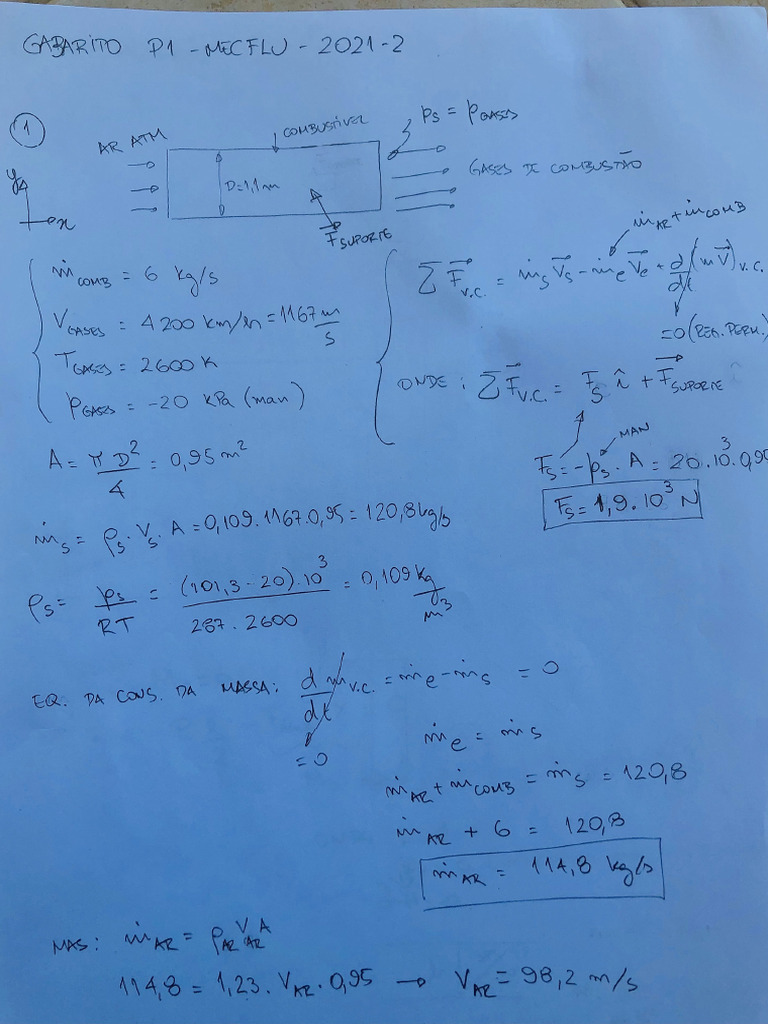 GABARITO P1 - MECFLU - 2021-2
1
AR ATM
COMBUSTÍVEL
p_s = p_GASES
y
x
D=1,1m
GASES DE COMBUSTÃO
F_SUPORTE
ṁ_AR + ṁ_COMB
ṁ_COMB = 6 kg/s
V_GASES = 4200 km/h = 1167 m/s
T_GASES = 2600 K
p_GASES = -20 kPa (man)
Σ F⃗_V.C. = ṁ_s V⃗_s - ṁ_e V⃗_e + d/dt (m V⃗)_V.C.
=0 (REG. PERM.)
ONDE: Σ F⃗_V.C. = F_s î + F⃗_SUPORTE
MAN
F_s = -p_s . A = 20.10³.0,95
F_s = 1,9.10³ N
A = π D²/4 = 0,95 m²
ṁ_s = ρ_s . V_s . A = 0,109.1167.0,95 = 120,8 kg/s
ρ_s = p_s/RT = (101,3-20).10³/287.2600 = 0,109 kg/m³
EQ. DA CONS. DA MASSA: d/dt m_V.C. = ṁ_e - ṁ_s = 0
=0
ṁ_e = ṁ_s
ṁ_AR + ṁ_COMB = ṁ_s = 120,8
ṁ_AR + 6 = 120,8
ṁ_AR = 114,8 kg/s
MAS: ṁ_AR = ρ_AR V_AR A
114,8 = 1,23 . V_AR . 0,95 → V_AR = 98,2 m/s